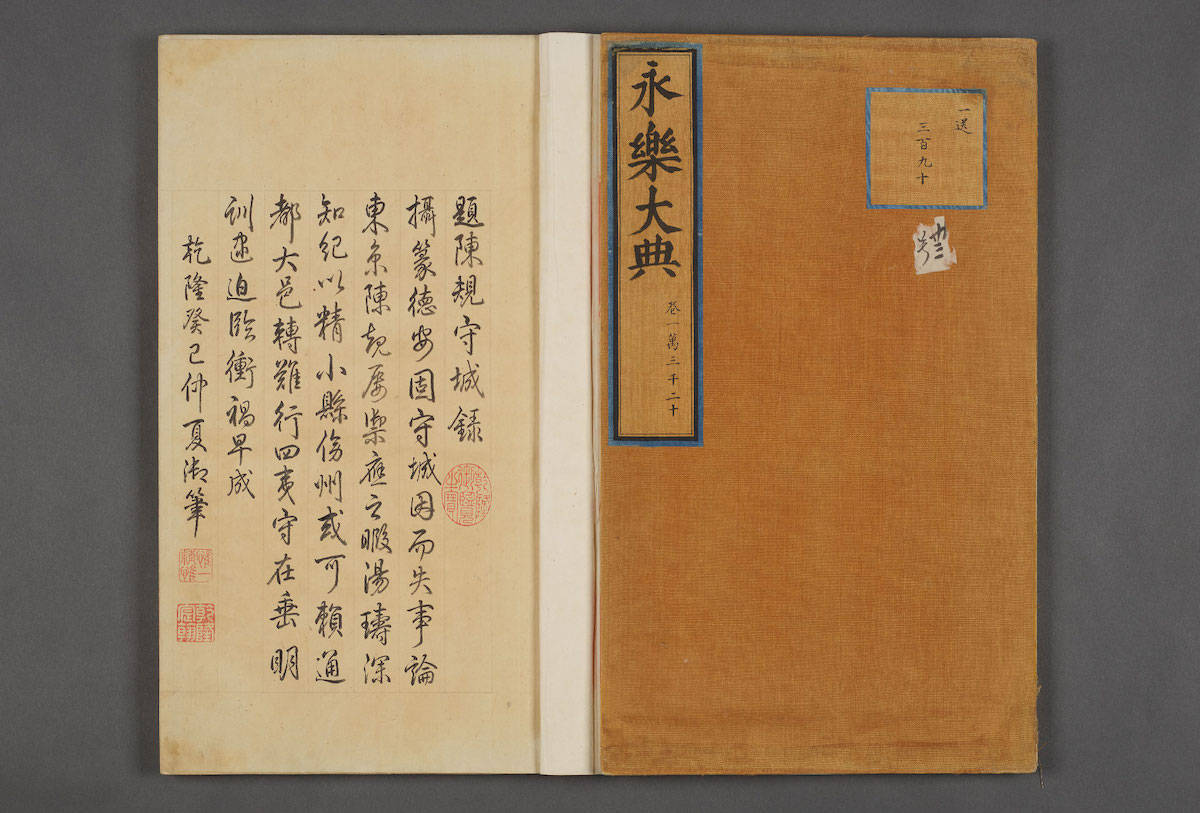 一送
三百九十
永樂大典
卷一萬三千二十
題陳規守城錄
乾隆御覽之寶
攝篆德安固守城因而失事論
東京陳規屢禦應之暇湯璹深
知紀以精小縣傍州或可賴通
都大邑轉難行四夷守在垂明
訓逮迫臨衝禍早成
乾隆癸巳仲夏御筆
惟精惟一
乾隆宸翰